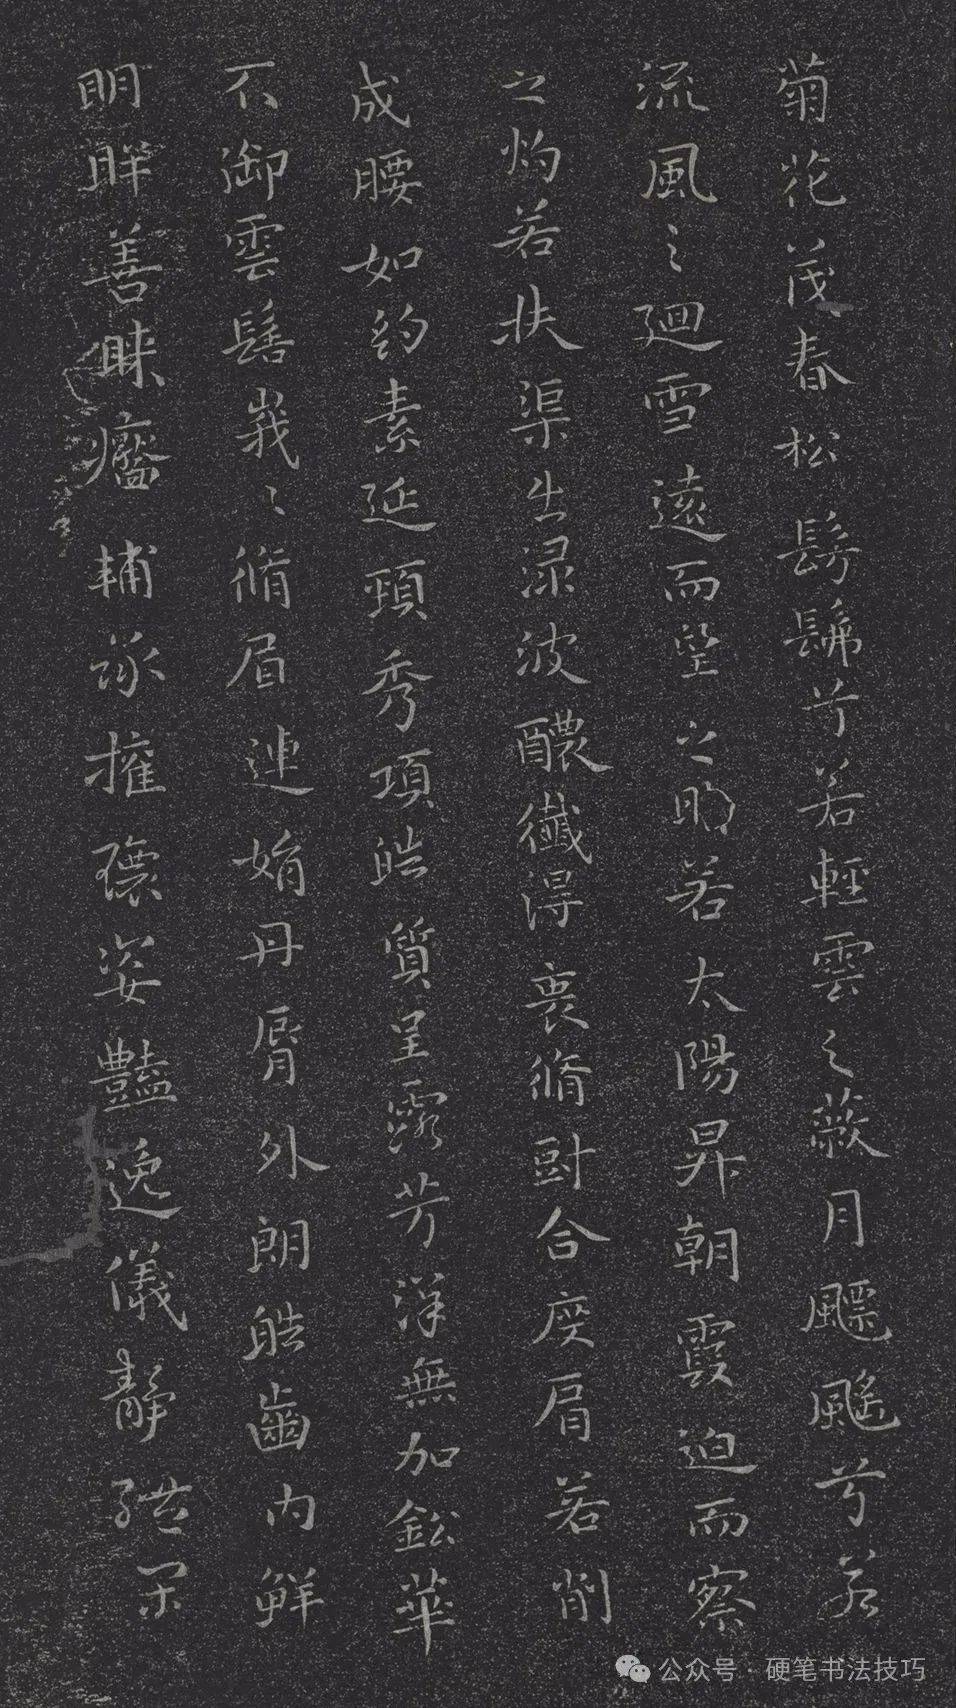 菊花茂春松髣髴兮若輕雲之蔽月飃颻兮若
流風之廻雪遠而望之皎若太陽昇朝霞迫而察
之灼若扶渠出渌波醲纖得衷脩短合度肩若削
成腰如約素延頸秀項皓質呈露芳澤無加鉛華
不御雲髻峩〻脩眉連娟丹脣外朗皓齒內鮮
明眸善睞靨輔承擁瓌姿豔逸儀靜體閑
公众号·硬笔书法技巧